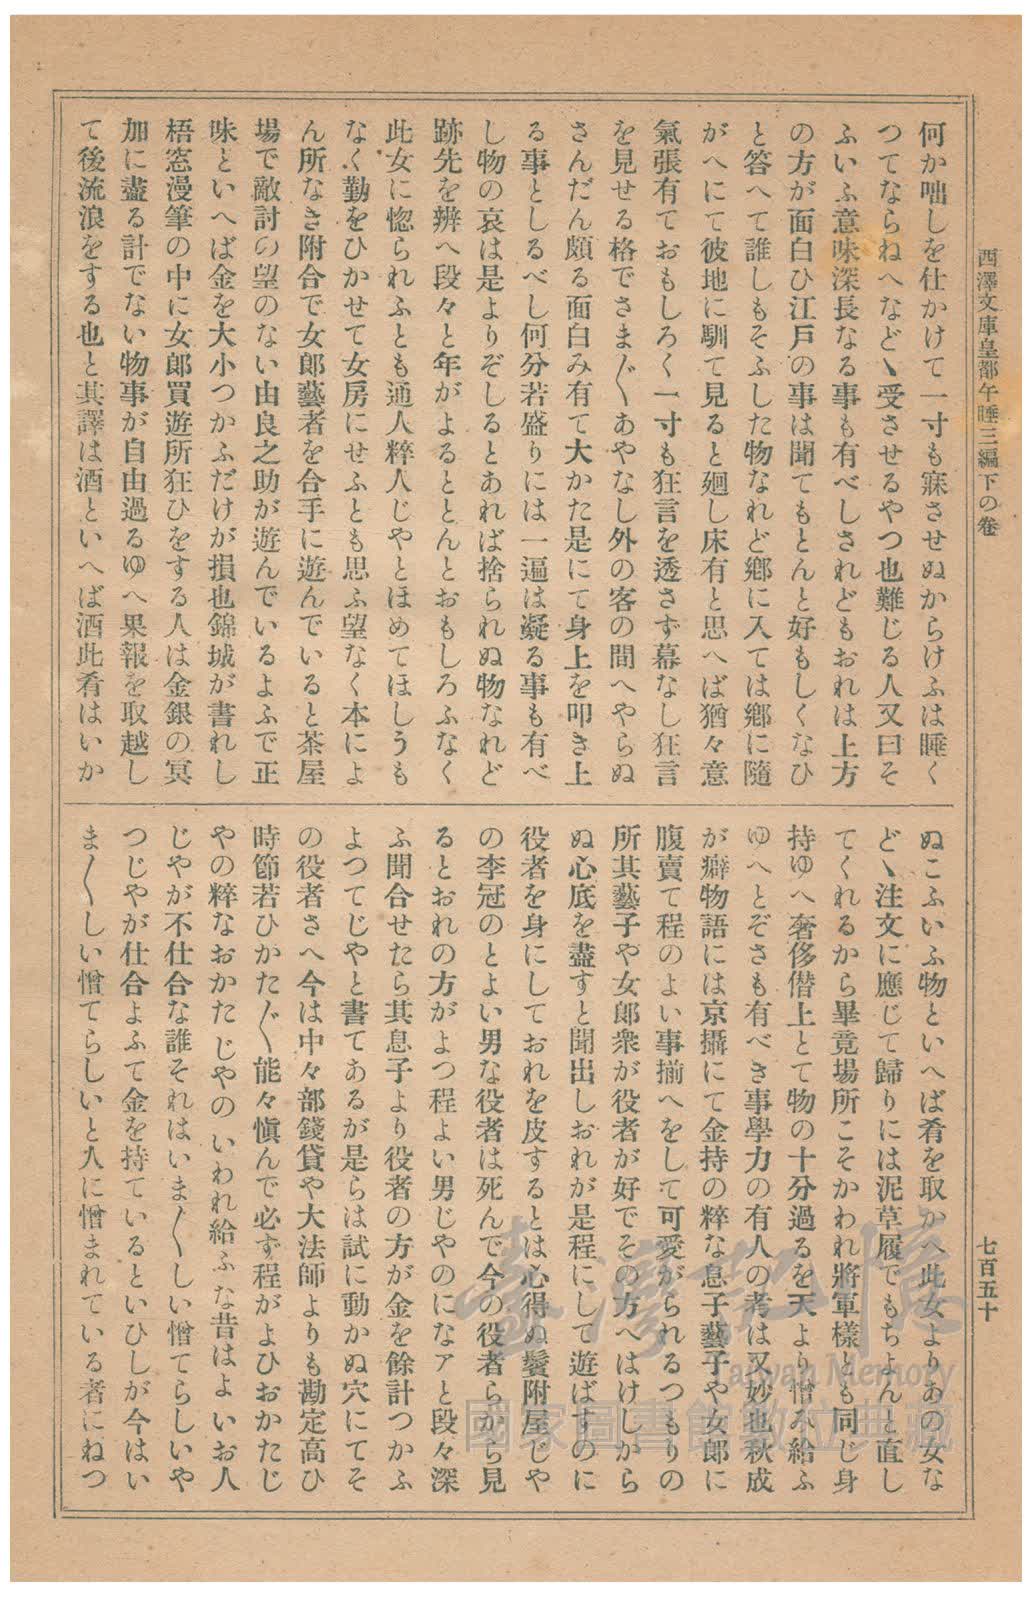 西澤文庫皇都午睡三編下の卷
七百五十
何か咄しを仕かけて一寸も寐させぬからけふは睡く
つてならねへなど〻受させるやつ也難じる人又曰そ
ふいふ意味深長なる事も有べしされどもおれは上方
の方が面白ひ江戸の事は聞てもとんと好もしくなひ
と答へて誰しもそふした物なれど鄕に入ては鄕に隨
がへにて彼地に馴て見ると廻し床有と思へば猶々意
氣張有ておもしろく一寸も狂言を透さず幕なし狂言
を見せる格でさま〴〵あやなし外の客の間へやらぬ
さんだん頗る面白み有て大かた是にて身上を叩き上
る事としるべし何分若盛りには一遍は凝る事も有べ
し物の哀は是よりぞしるとあれば捨られぬ物なれど
跡先を辨へ段々と年がよるととんとおもしろふなく
此女に惚られふとも通人粹人じやとほめてほしうも
なく勤をひかせて女房にせふとも思ふ望なく本によ
ん所なき附合で女郎藝者を合手に遊んでいると茶屋
場で敵討の望のない由良之助が遊んでいるよふで正
味といへば金を大小つかふだけが損也錦城が書れし
梧窓漫筆の中に女郎買遊所狂ひをする人は金銀の冥
加に盡る計でない物事が自由過るゆへ果報を取越し
て後流浪をする也と其譯は酒といへば酒此肴はいか
ぬこふいふ物といへば肴を取かへ此女よりあの女な
ど〻注文に應じて歸りには泥草履でもちよんと直し
てくれるから畢竟場所こそかわれ將軍樣とも同じ身
持ゆへ奢侈僭上とて物の十分過るを天より憎み給ふ
ゆへとぞさも有べき事學力の有人の考は又妙也秋成
が癖物語には京攝にて金持の粹な息子藝子や女郎に
腹賣て程のよい事揃へをして可愛がられるつもりの
所其藝子や女郎衆が役者が好でその方へはけしから
ぬ心底を盡すと聞出しおれが是程にして遊ばすのに
役者を身にしておれを皮するとは心得ぬ鬢附屋じや
の李冠のとよい男な役者は死んで今の役者らから見
るとおれの方がよつ程よい男じやのになアと段々深
ふ聞合せたら其息子より役者の方が金を餘計つかふ
よつてじやと書てあるが是らは試に動かぬ穴にてそ
の役者さへ今は中々部錢貸や大法師よりも勘定高ひ
時節若ひかた〴〵能々愼んで必ず程がよひおかたじ
やの粹なおかたじやのいわれ給ふな昔はよいお人
じやが不仕合な誰それはいま〳〵しい憎てらしいや
つじやが仕合よふて金を持ているといひしが今はい
ま〳〵しい憎てらしいと人に憎まれている者にねつ
臺灣記憶
Taiwan Memory
國家圖書館數位典藏